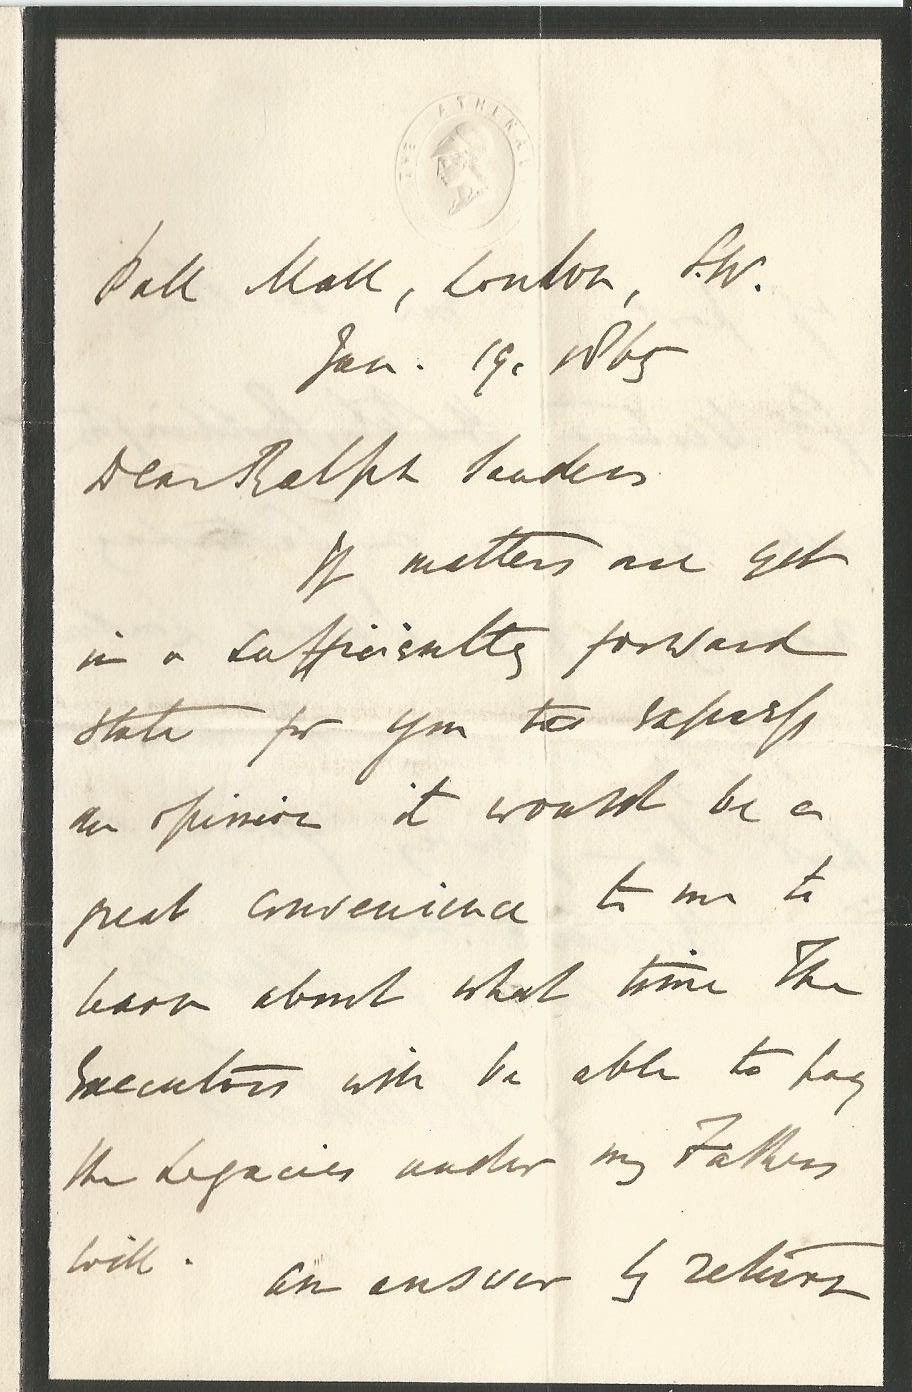 THE ATHENAEUM
Pall Mall, London, S.W.
Jan. 19. 1865
Dear Ralph Sanders
If matters are yet
in a sufficiently forward
state for you to express
an opinion it would be a
great convenience to me to
learn about what time the
Executors will be able to pay
the Legacies under my Fathers
will.
an answer by return